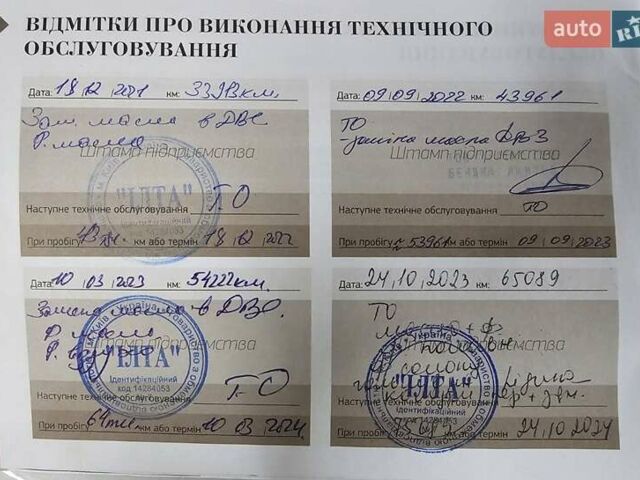 ВІДМІТКИ ПРО ВИКОНАННЯ ТЕХНІЧНОГО
ОБСЛУГОВУВАННЯ
auto RIA
Дата: 18 12 2021 км: 33913км.
Зам. масла в ДВС
Ф. масла
Штамп підприємства
"ІЛТА"
Наступне технічне обслуговування Т-О
При пробігу км або термін 18 12 2022
Дата: 09 09 2022 км: 43961
ТО
-заміна масла ДВЗ
Штамп підприємства
Наступне технічне обслуговування ТО
При пробігу ≈53961 км або термін 09 09 2023
Дата: 10 03 2023 км: 54222км.
Замена масла в ДВС.
Ф масла
Ф. воздуха
Україна
"ІЛТА"
Ідентифікаційний
код 14284053
Наступне технічне обслуговування Т-О
При пробігу 64тыс. км або термін 10 03 2024
Дата: 24,10,2023 км: 65089
ТО
масло + ф
Штамп підприємства
Україна
"ІЛТА"
Ідентифікаційний
код 14284053
Наступне технічне
При пробігу км або термін 24.10 2024